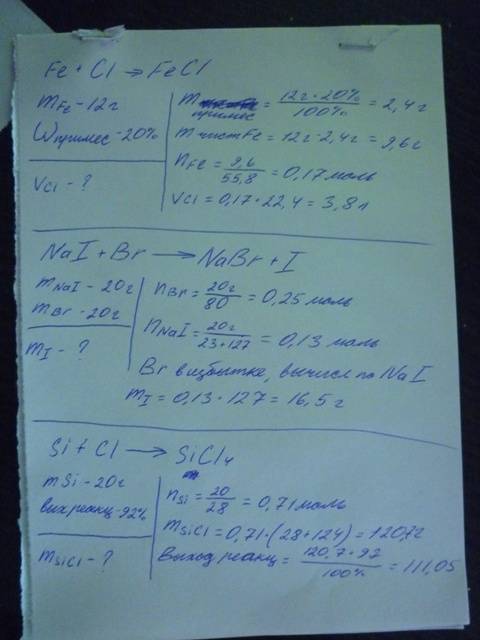 Fe + Cl → FeCl
mFe - 12г
Wпримес - 20%
VCl - ?
m примес = 12г · 20% / 100% = 2,4 г
m чист Fe = 12г - 2,4 г = 9,6 г
nFe = 9,6 / 55,8 = 0,17 моль
VCl = 0,17 · 22,4 = 3,8 л
NaI + Br → NaBr + I
mNaI - 20г
mBr - 20г
mI - ?
nBr = 20г / 80 = 0,25 моль
nNaI = 20г / 23+127 = 0,13 моль
Br в избытке, вычисл по NaI
mI = 0,13 · 127 = 16,5 г
Si + Cl → SiCl₄
mSi - 20г
вых реакц - 92%
mSiCl - ?
nSi = 20 / 28 = 0,71 моль
mSiCl = 0,71 · (28 + 124) = 120,7г
Выход реакц = 120,7 · 92 / 100% = 111,05